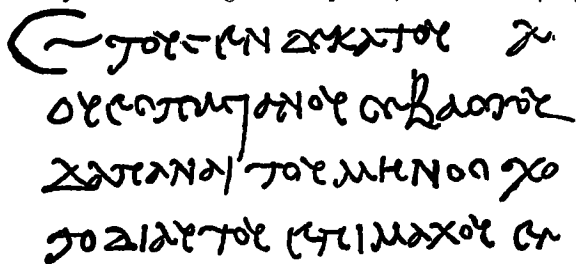 ετους ενδεκατου αυ
ουεσπασιανου σεβαστου
δαπαναι του μηνος χο
το διαυτου επιμαχου